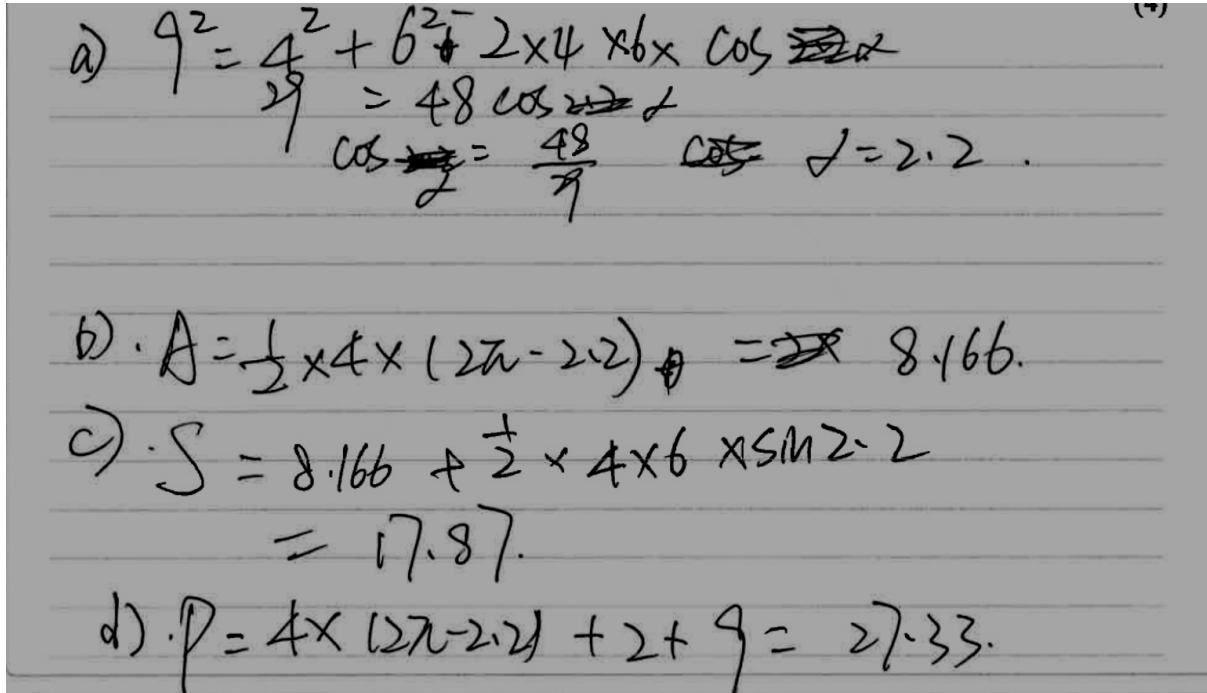 (4)
a) 9² = 4² + 6² - 2×4×6× cos α
29 = 48 cos α
cos α = 48/29 α = 2.2.
b). A = 1/2 × 4 × (2π - 2.2) = 8.166.
c). S = 8.166 + 1/2 × 4 × 6 × sin 2.2
= 17.87.
d). P = 4 × (2π - 2.2) + 2 + 9 = 27.33.